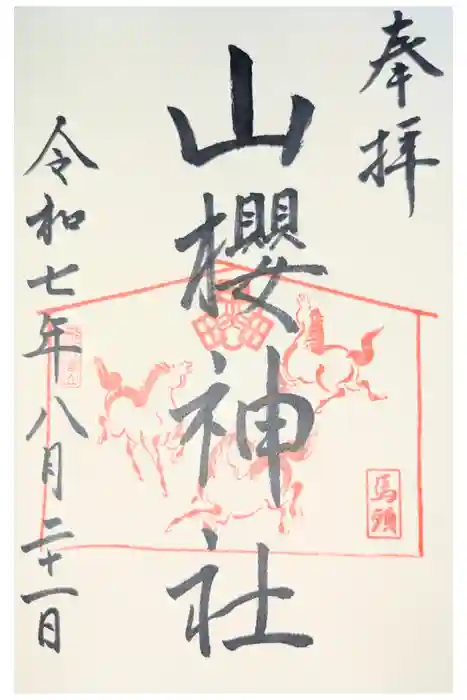 奉拝
山櫻神社
馬頭
令和七年八月二十一日